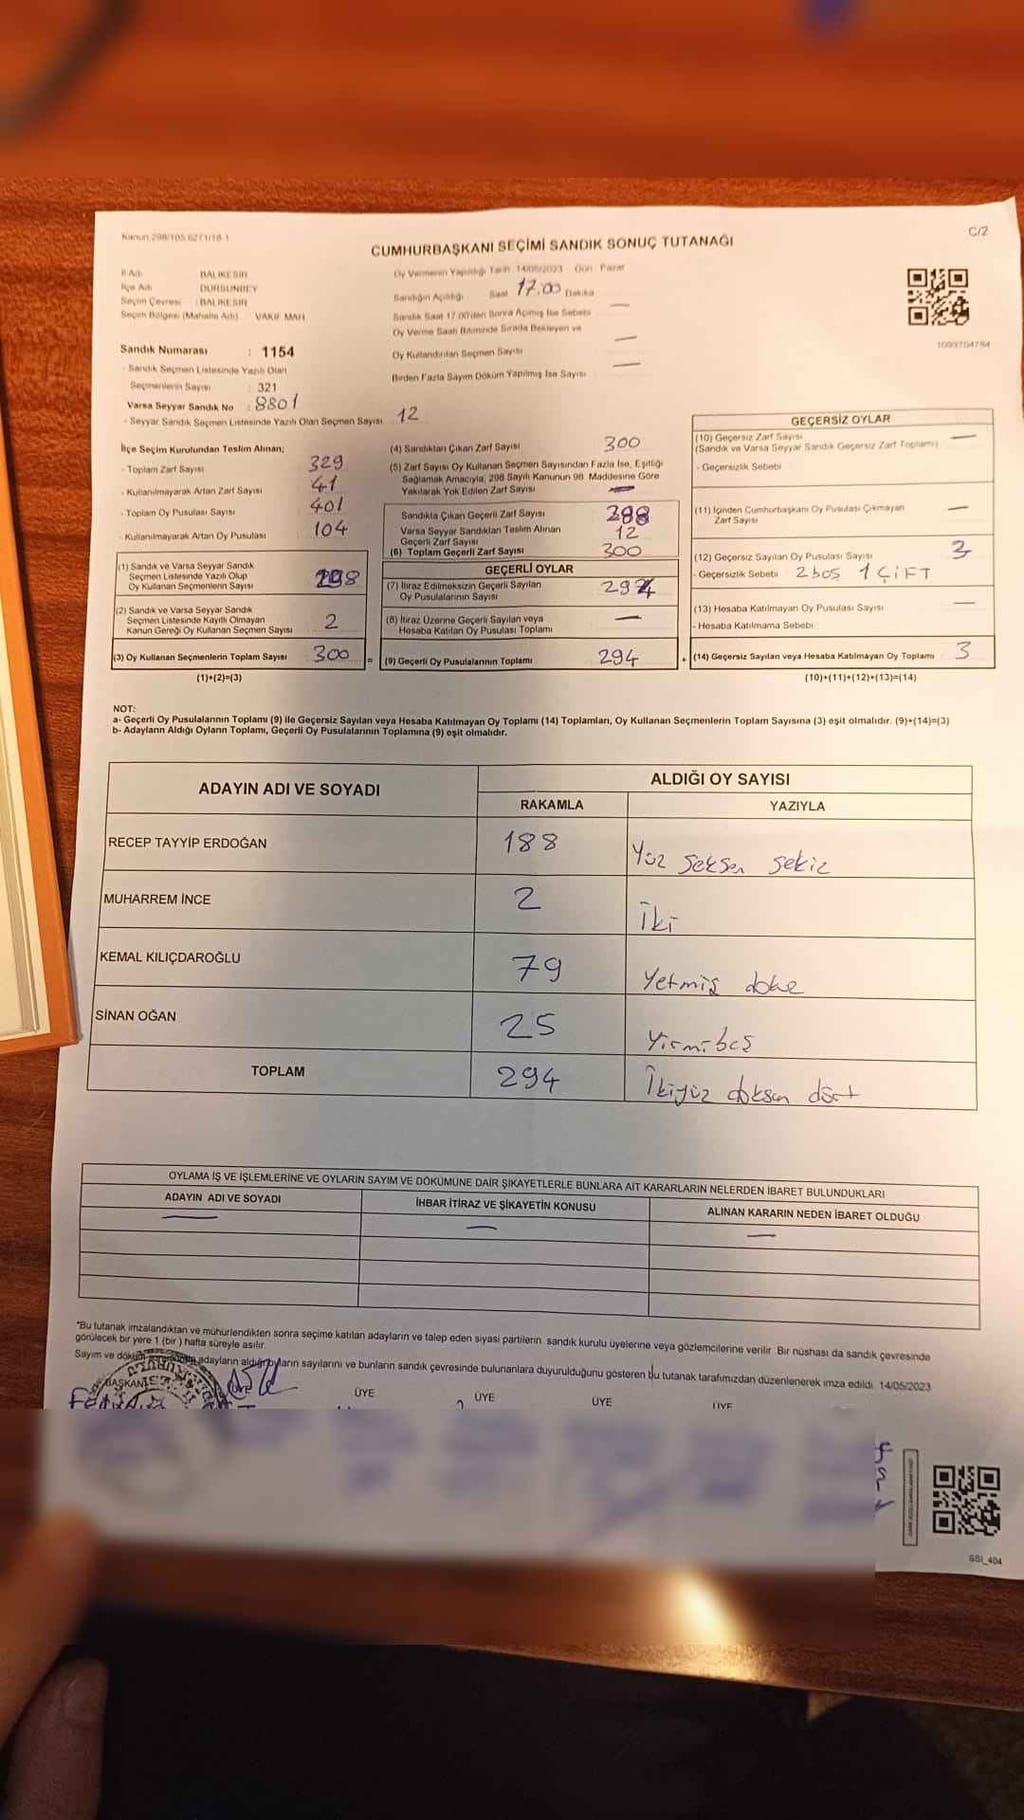 Kanun 298/105,6271/18-1
C/2
CUMHURBAŞKANI SEÇİMİ SANDIK SONUÇ TUTANAĞI
İl Adı : BALIKESİR
İlçe Adı : DURSUNBEY
Seçim Çevresi : BALIKESİR
Seçim Bölgesi (Mahalle Adı) VAKIF MAH.
Oy Vermenin Yapıldığı Tarih : 14/05/2023 Gün : Pazar
Sandığın Açıldığı Saat 17.00 Dakika
Sandık Saat 17.00'den Sonra Açılmış İse Sebebi —
Oy Verme Saati Bitiminde Sırada Bekleyen ve
Oy Kullandırılan Seçmen Sayısı —
Birden Fazla Sayım Döküm Yapılmış İse Sayısı —
1093704784
Sandık Numarası : 1154
- Sandık Seçmen Listesinde Yazılı Olan
Seçmenlerin Sayısı : 321
Varsa Seyyar Sandık No : 8801
- Seyyar Sandık Seçmen Listesinde Yazılı Olan Seçmen Sayısı 12
İlçe Seçim Kurulundan Teslim Alınan;
- Toplam Zarf Sayısı 329
- Kullanılmayarak Artan Zarf Sayısı 41
- Toplam Oy Pusulası Sayısı 401
- Kullanılmayarak Artan Oy Pusulası 104
(1) Sandık ve Varsa Seyyar Sandık
Seçmen Listesinde Yazılı Olup
Oy Kullanan Seçmenlerin Sayısı 298
(2) Sandık ve Varsa Seyyar Sandık
Seçmen Listesinde Kayıtlı Olmayan
Kanun Gereği Oy Kullanan Seçmen Sayısı 2
(3) Oy Kullanan Seçmenlerin Toplam Sayısı 300 =
(1)+(2)=(3)
(4) Sandıktan Çıkan Zarf Sayısı 300
(5) Zarf Sayısı Oy Kullanan Seçmen Sayısından Fazla İse, Eşitliği
Sağlamak Amacıyla, 298 Sayılı Kanunun 98. Maddesine Göre
Yakılarak Yok Edilen Zarf Sayısı —
Sandıkta Çıkan Geçerli Zarf Sayısı 288
Varsa Seyyar Sandıktan Teslim Alınan
Geçerli Zarf Sayısı 12
(6) Toplam Geçerli Zarf Sayısı 300
GEÇERLİ OYLAR
(7) İtiraz Edilmeksizin Geçerli Sayılan
Oy Pusulalarının Sayısı 294
(8) İtiraz Üzerine Geçerli Sayılan veya
Hesaba Katılan Oy Pusulası Toplamı —
(9) Geçerli Oy Pusulalarının Toplamı 294 +
GEÇERSİZ OYLAR
(10) Geçersiz Zarf Sayısı —
(Sandık ve Varsa Seyyar Sandık Geçersiz Zarf Toplamı)
- Geçersizlik Sebebi
(11) İçinden Cumhurbaşkanı Oy Pusulası Çıkmayan
Zarf Sayısı —
(12) Geçersiz Sayılan Oy Pusulası Sayısı 3
- Geçersizlik Sebebi 2 boş 1 ÇİFT
(13) Hesaba Katılmayan Oy Pusulası Sayısı —
- Hesaba Katılmama Sebebi
(14) Geçersiz Sayılan veya Hesaba Katılmayan Oy Toplamı 3
(10)+(11)+(12)+(13)=(14)
NOT:
a- Geçerli Oy Pusulalarının Toplamı (9) ile Geçersiz Sayılan veya Hesaba Katılmayan Oy Toplamı (14) Toplamları, Oy Kullanan Seçmenlerin Toplam Sayısına (3) eşit olmalıdır. (9)+(14)=(3)
b- Adayların Aldığı Oyların Toplamı, Geçerli Oy Pusulalarının Toplamına (9) eşit olmalıdır.
ADAYIN ADI VE SOYADI
ALDIĞI OY SAYISI
RAKAMLA YAZIYLA
RECEP TAYYİP ERDOĞAN 188 Yüz seksen sekiz
MUHARREM İNCE 2 İki
KEMAL KILIÇDAROĞLU 79 Yetmiş dokuz
SİNAN OĞAN 25 Yirmi beş
TOPLAM 294 İkiyüz doksan dört
OYLAMA İŞ VE İŞLEMLERİNE VE OYLARIN SAYIM VE DÖKÜMÜNE DAİR ŞİKAYETLERLE BUNLARA AİT KARARLARIN NELERDEN İBARET BULUNDUKLARI
ADAYIN ADI VE SOYADI İHBAR İTİRAZ VE ŞİKAYETİN KONUSU ALINAN KARARIN NEDEN İBARET OLDUĞU
— — —
"Bu tutanak imzalandıktan ve mühürlendikten sonra seçime katılan adayların ve talep eden siyasi partilerin sandık kurulu üyelerine veya gözlemcilerine verilir. Bir nüshası da sandık çevresinde
görülecek bir yere 1 (bir) hafta süreyle asılır.
Sayım ve döküm adayların aldığı oyların sayılarını ve bunların sandık çevresinde bulunanlara duyurulduğunu gösteren bu tutanak tarafımızdan düzenlenerek imza edildi. 14/05/2023
BAŞKAN ÜYE ÜYE ÜYE ÜYE
GSI_404